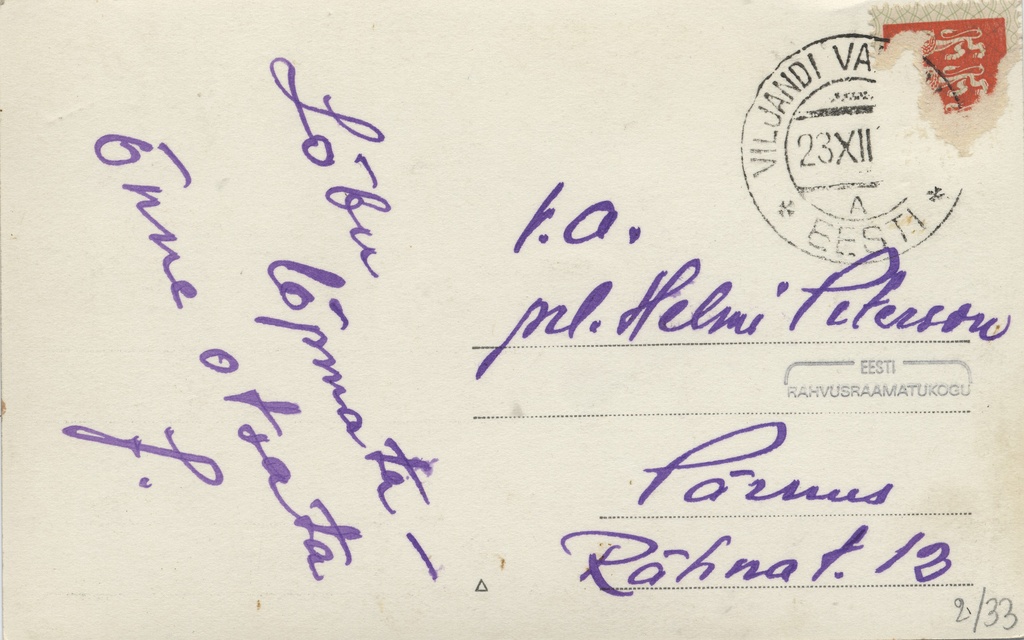 Lõbu
lõpmata –
Õnne otsata
J.
VILJANDI VA
23 XII
A
* EESTI *
t. a.
prl. Helmi Peterson
EESTI
RAHVUSRAAMATUKOGU
Pärnus
Rähna t. 13
2/33